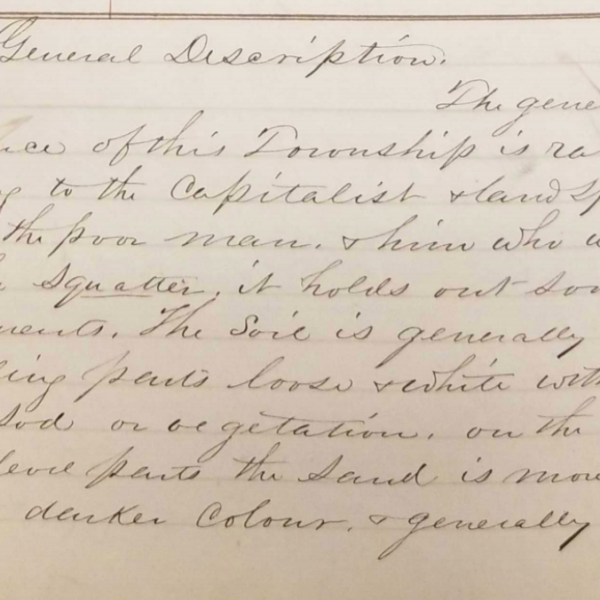 General Description.
The gene
nce of this Township is ra
g to the Capitalist & land Sp
the poor man. & him who w
squatter, it holds out som
ments. The Soil is generally
ling parts loose & white with
sod or vegetation, on the
level parts the sand is more
darker Colour, & generally